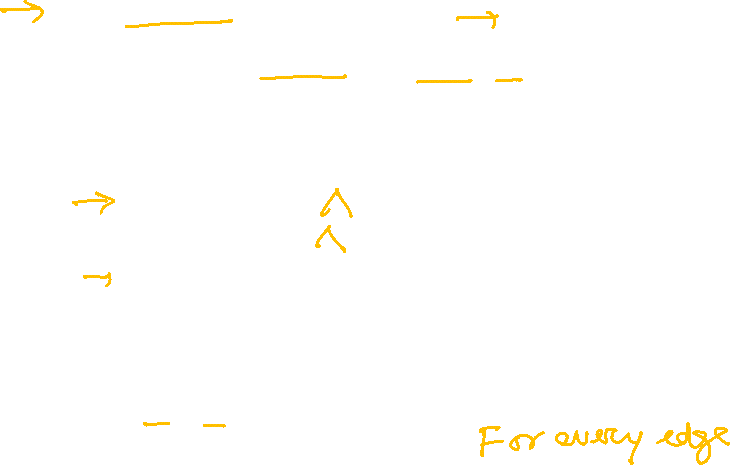 For every edge